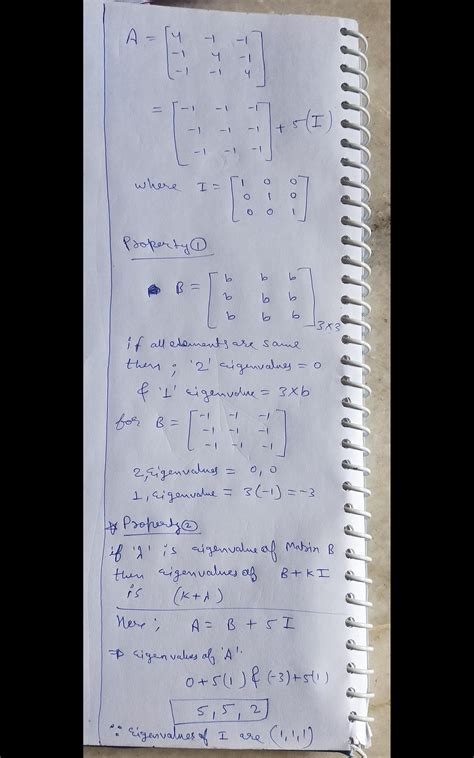 A = [4 -1 -1
-1 4 -1
-1 -1 4]
= [-1 -1 -1
-1 -1 -1
-1 -1 -1] + 5(I)
where I = [1 0 0
0 1 0
0 0 1]
Property ①
B = [b b b
b b b
b b b]3×3
if all elements are same
then ; '2' eigenvalues = 0
& '1' eigenvalue = 3×b
for B = [-1 -1 -1
-1 -1 -1
-1 -1 -1]
2, eigenvalues = 0, 0
1, eigenvalue = 3(-1) = -3
* Property ②
if 'λ' is eigenvalue of Matrix B
then eigenvalues of B + KI
is (K+λ)
Here; A = B + 5I
⇒ eigenvalues of 'A'.
0+5(1) & (-3)+5(1)
5, 5, 2
∵ eigenvalues of I are (1,1,1)